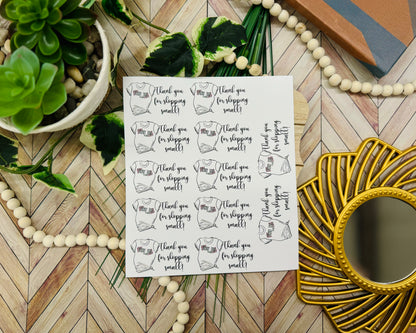 Thank you
for shopping
small!
Thank you
for shopping
small!
Thank you
for shopping
small!
Thank you
for shopping
small!
Thank you
for shopping
small!
Thank you
for shopping
small!
Thank you
for shopping
small!
Thank you
for shopping
small!
Thank you
for shopping
small!
Thank you
for shopping
small!
Thank you
for shopping
small!
Thank you
for shopping
small!